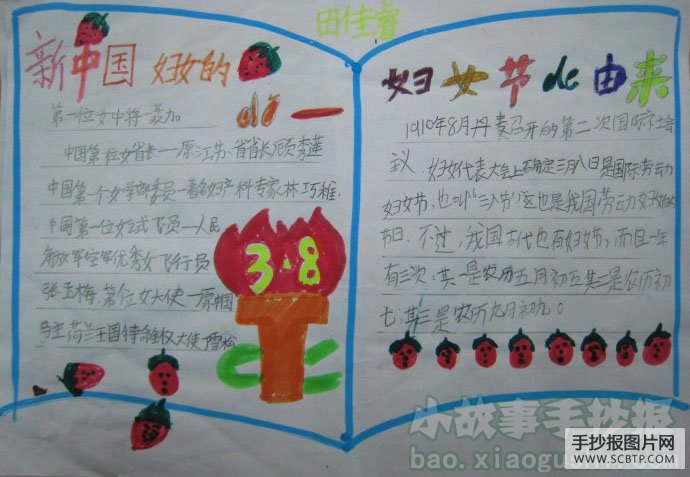 田佳睿
新中国 妇女的
dì 一
第一位女中将一聂力。
中国第位女省长一原江苏省省长顾秀莲
中国第一个女学部委员一著名妇产科专家林巧稚.
中国第一位女试飞员一人民
解放军空军优秀女飞行员
张玉梅.第位女大使一原中国
荷兰王国特命全权大使 雪松
3·8
妇女节de由来
1910年8月丹麦召开的第二次国际社会
议 妇女代表大会上确定三月八日是国际劳动
妇女节,也叫"三八节"这也是我国劳动妇女的
节日.不过,我国古代也有妇女节,而且一年
有三次,其一是农历五月初五其二是农历初
七,其三是农历九月初九。
小故事手抄报
bao.xiaogu
手抄报图片网
WWW.SCBTP.COM